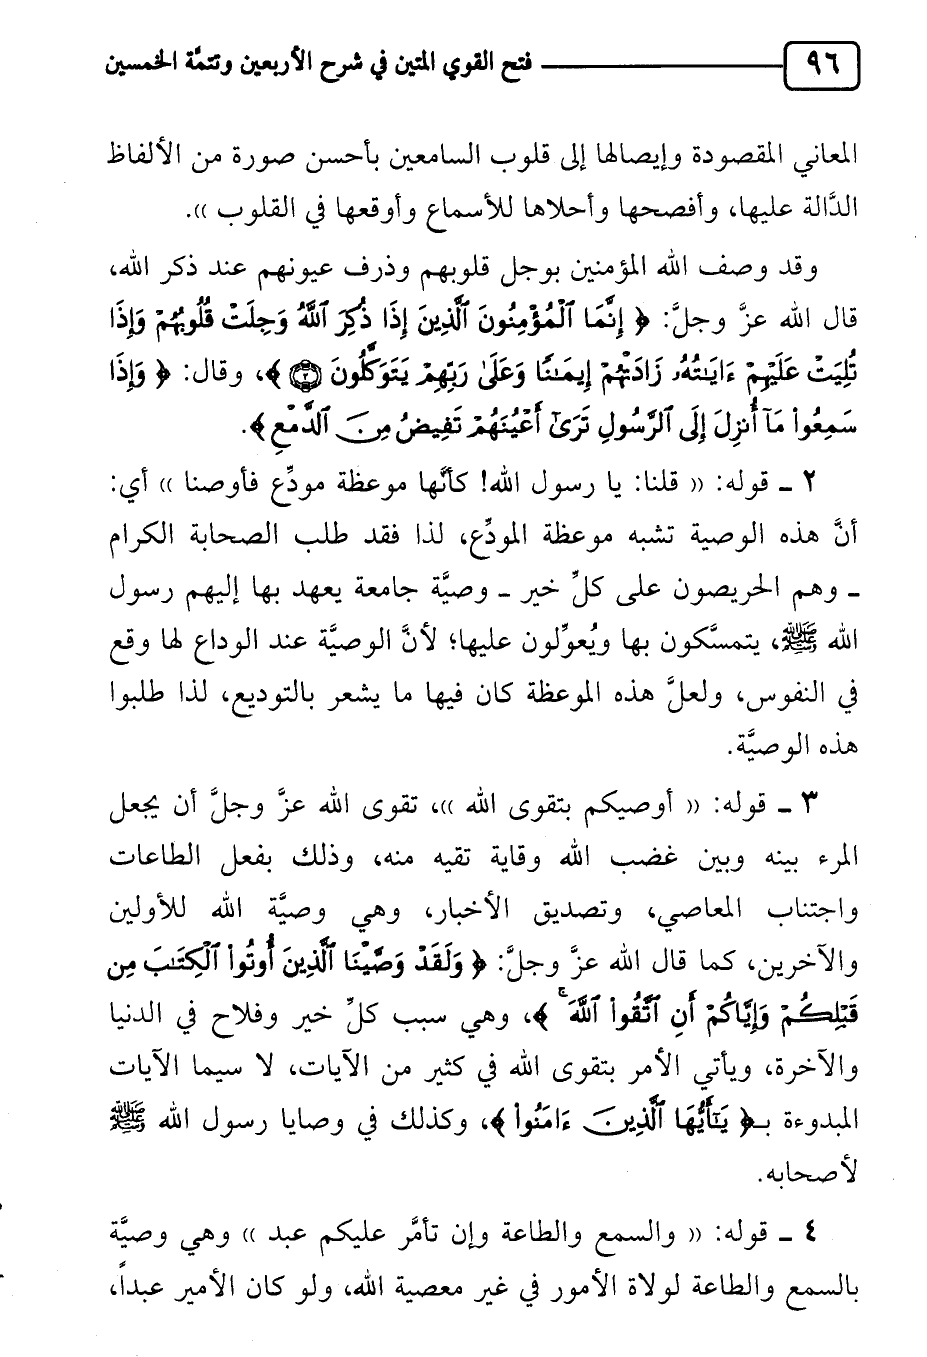 ٩٦ فتح القوي المتين في شرح الأربعين وتتمَّة الخمسين
المعاني المقصودة وإيصالها إلى قلوب السامعين بأحسن صورة من الألفاظ
الدَّالة عليها، وأفصحها وأحلاها للأسماع وأوقعها في القلوب )).
وقد وصف الله المؤمنين بوجل قلوبهم وذرف عيونهم عند ذكر الله،
قال الله عزَّ وجلَّ: ﴿ إِنَّمَا ٱلْمُؤْمِنُونَ ٱلَّذِينَ إِذَا ذُكِرَ ٱللَّهُ وَجِلَتْ قُلُوبُهُمْ وَإِذَا
تُلِيَتْ عَلَيْهِمْ ءَايَـٰتُهُۥ زَادَتْهُمْ إِيمَـٰنًا وَعَلَىٰ رَبِّهِمْ يَتَوَكَّلُونَ ۝٢ ﴾، وقال: ﴿ وَإِذَا
سَمِعُوا۟ مَآ أُنزِلَ إِلَى ٱلرَّسُولِ تَرَىٰٓ أَعْيُنَهُمْ تَفِيضُ مِنَ ٱلدَّمْعِ ﴾.
٢ ـ قوله: (( قلنا: يا رسول الله! كأنَّها موعظة مودِّع فأوصنا )) أي:
أنَّ هذه الوصية تشبه موعظة المودِّع، لذا فقد طلب الصحابة الكرام
ـ وهم الحريصون على كلِّ خير ـ وصيَّة جامعة يعهد بها إليهم رسول
الله ﷺ، يتمسَّكون بها ويُعوِّلون عليها؛ لأنَّ الوصيَّة عند الوداع لها وقع
في النفوس، ولعلَّ هذه الموعظة كان فيها ما يشعر بالتوديع، لذا طلبوا
هذه الوصيَّة.
٣ ـ قوله: (( أوصيكم بتقوى الله ))، تقوى الله عزَّ وجلَّ أن يجعل
المرء بينه وبين غضب الله وقاية تقيه منه، وذلك بفعل الطاعات
واجتناب المعاصي، وتصديق الأخبار، وهي وصيَّة الله للأولين
والآخرين، كما قال الله عزَّ وجلَّ: ﴿ وَلَقَدْ وَصَّيْنَا ٱلَّذِينَ أُوتُوا۟ ٱلْكِتَـٰبَ مِن
قَبْلِكُمْ وَإِيَّاكُمْ أَنِ ٱتَّقُوا۟ ٱللَّهَ ۚ ﴾، وهي سبب كلِّ خير وفلاح في الدنيا
والآخرة، ويأتي الأمر بتقوى الله في كثير من الآيات، لا سيما الآيات
المبدوءة بـ﴿ يَـٰٓأَيُّهَا ٱلَّذِينَ ءَامَنُوا۟ ﴾، وكذلك في وصايا رسول الله ﷺ
لأصحابه.
٤ ـ قوله: (( والسمع والطاعة وإن تأمَّر عليكم عبد )) وهي وصيَّة
بالسمع والطاعة لولاة الأمور في غير معصية الله، ولو كان الأمير عبداً،